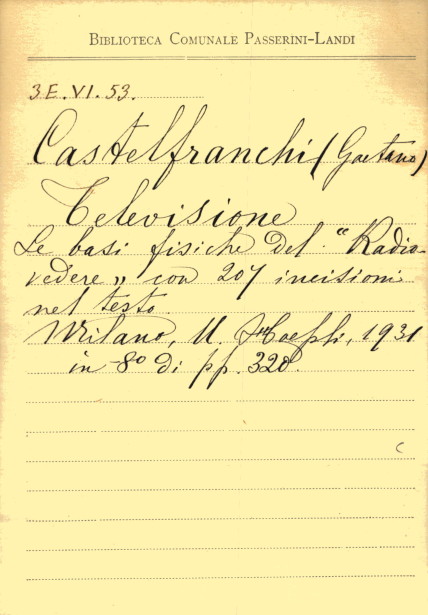 BIBLIOTECA COMUNALE PASSERINI-LANDI
3E.VI.53.
Castelfranchi (Gaetano)
Televisione
Le basi fisiche del "Radio-
vedere" con 207 incisioni
nel testo.
Milano, U. Hoepli, 1931
in-8° di pp. 320.
c